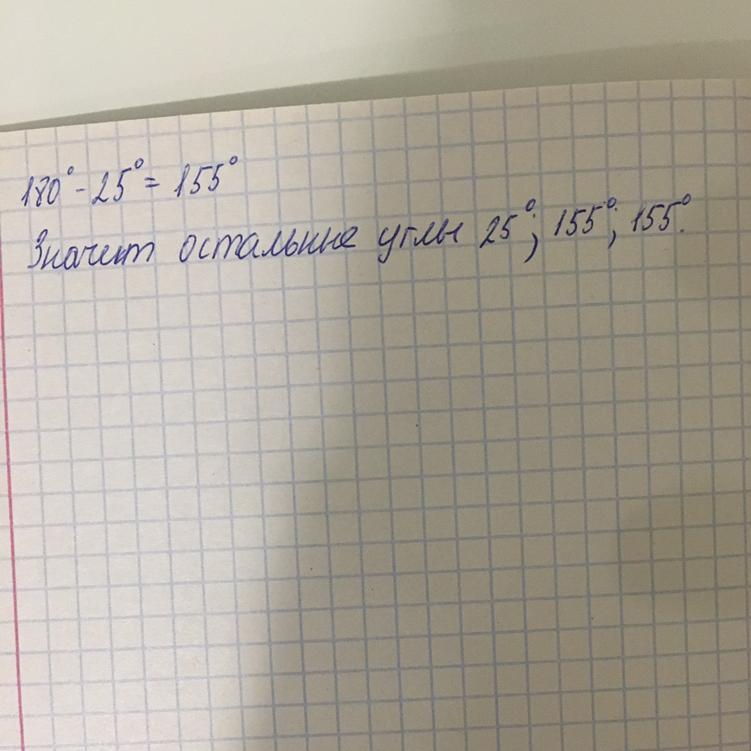 180° - 25° = 155°
Значит остальные углы 25°; 155°; 155°.